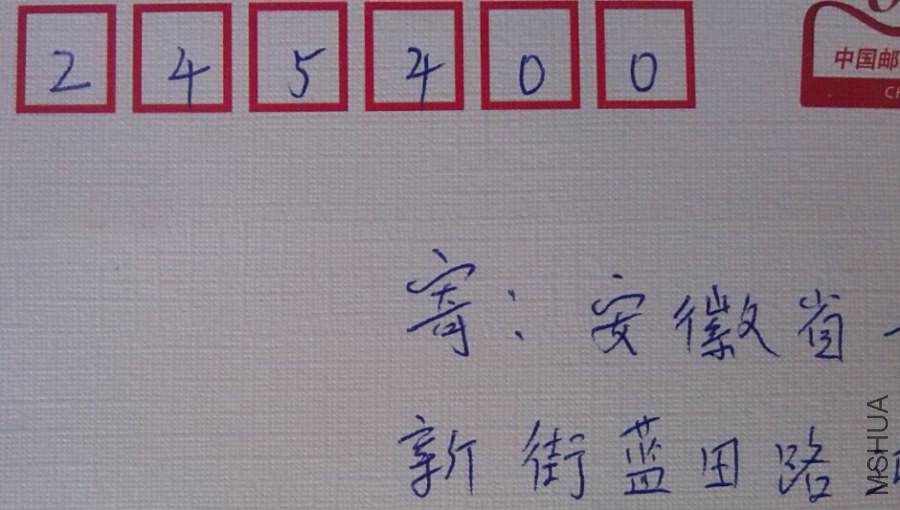 2 4 5 4 0 0
中国邮
CH
寄：安徽省
新街蓝田路
MSHUA